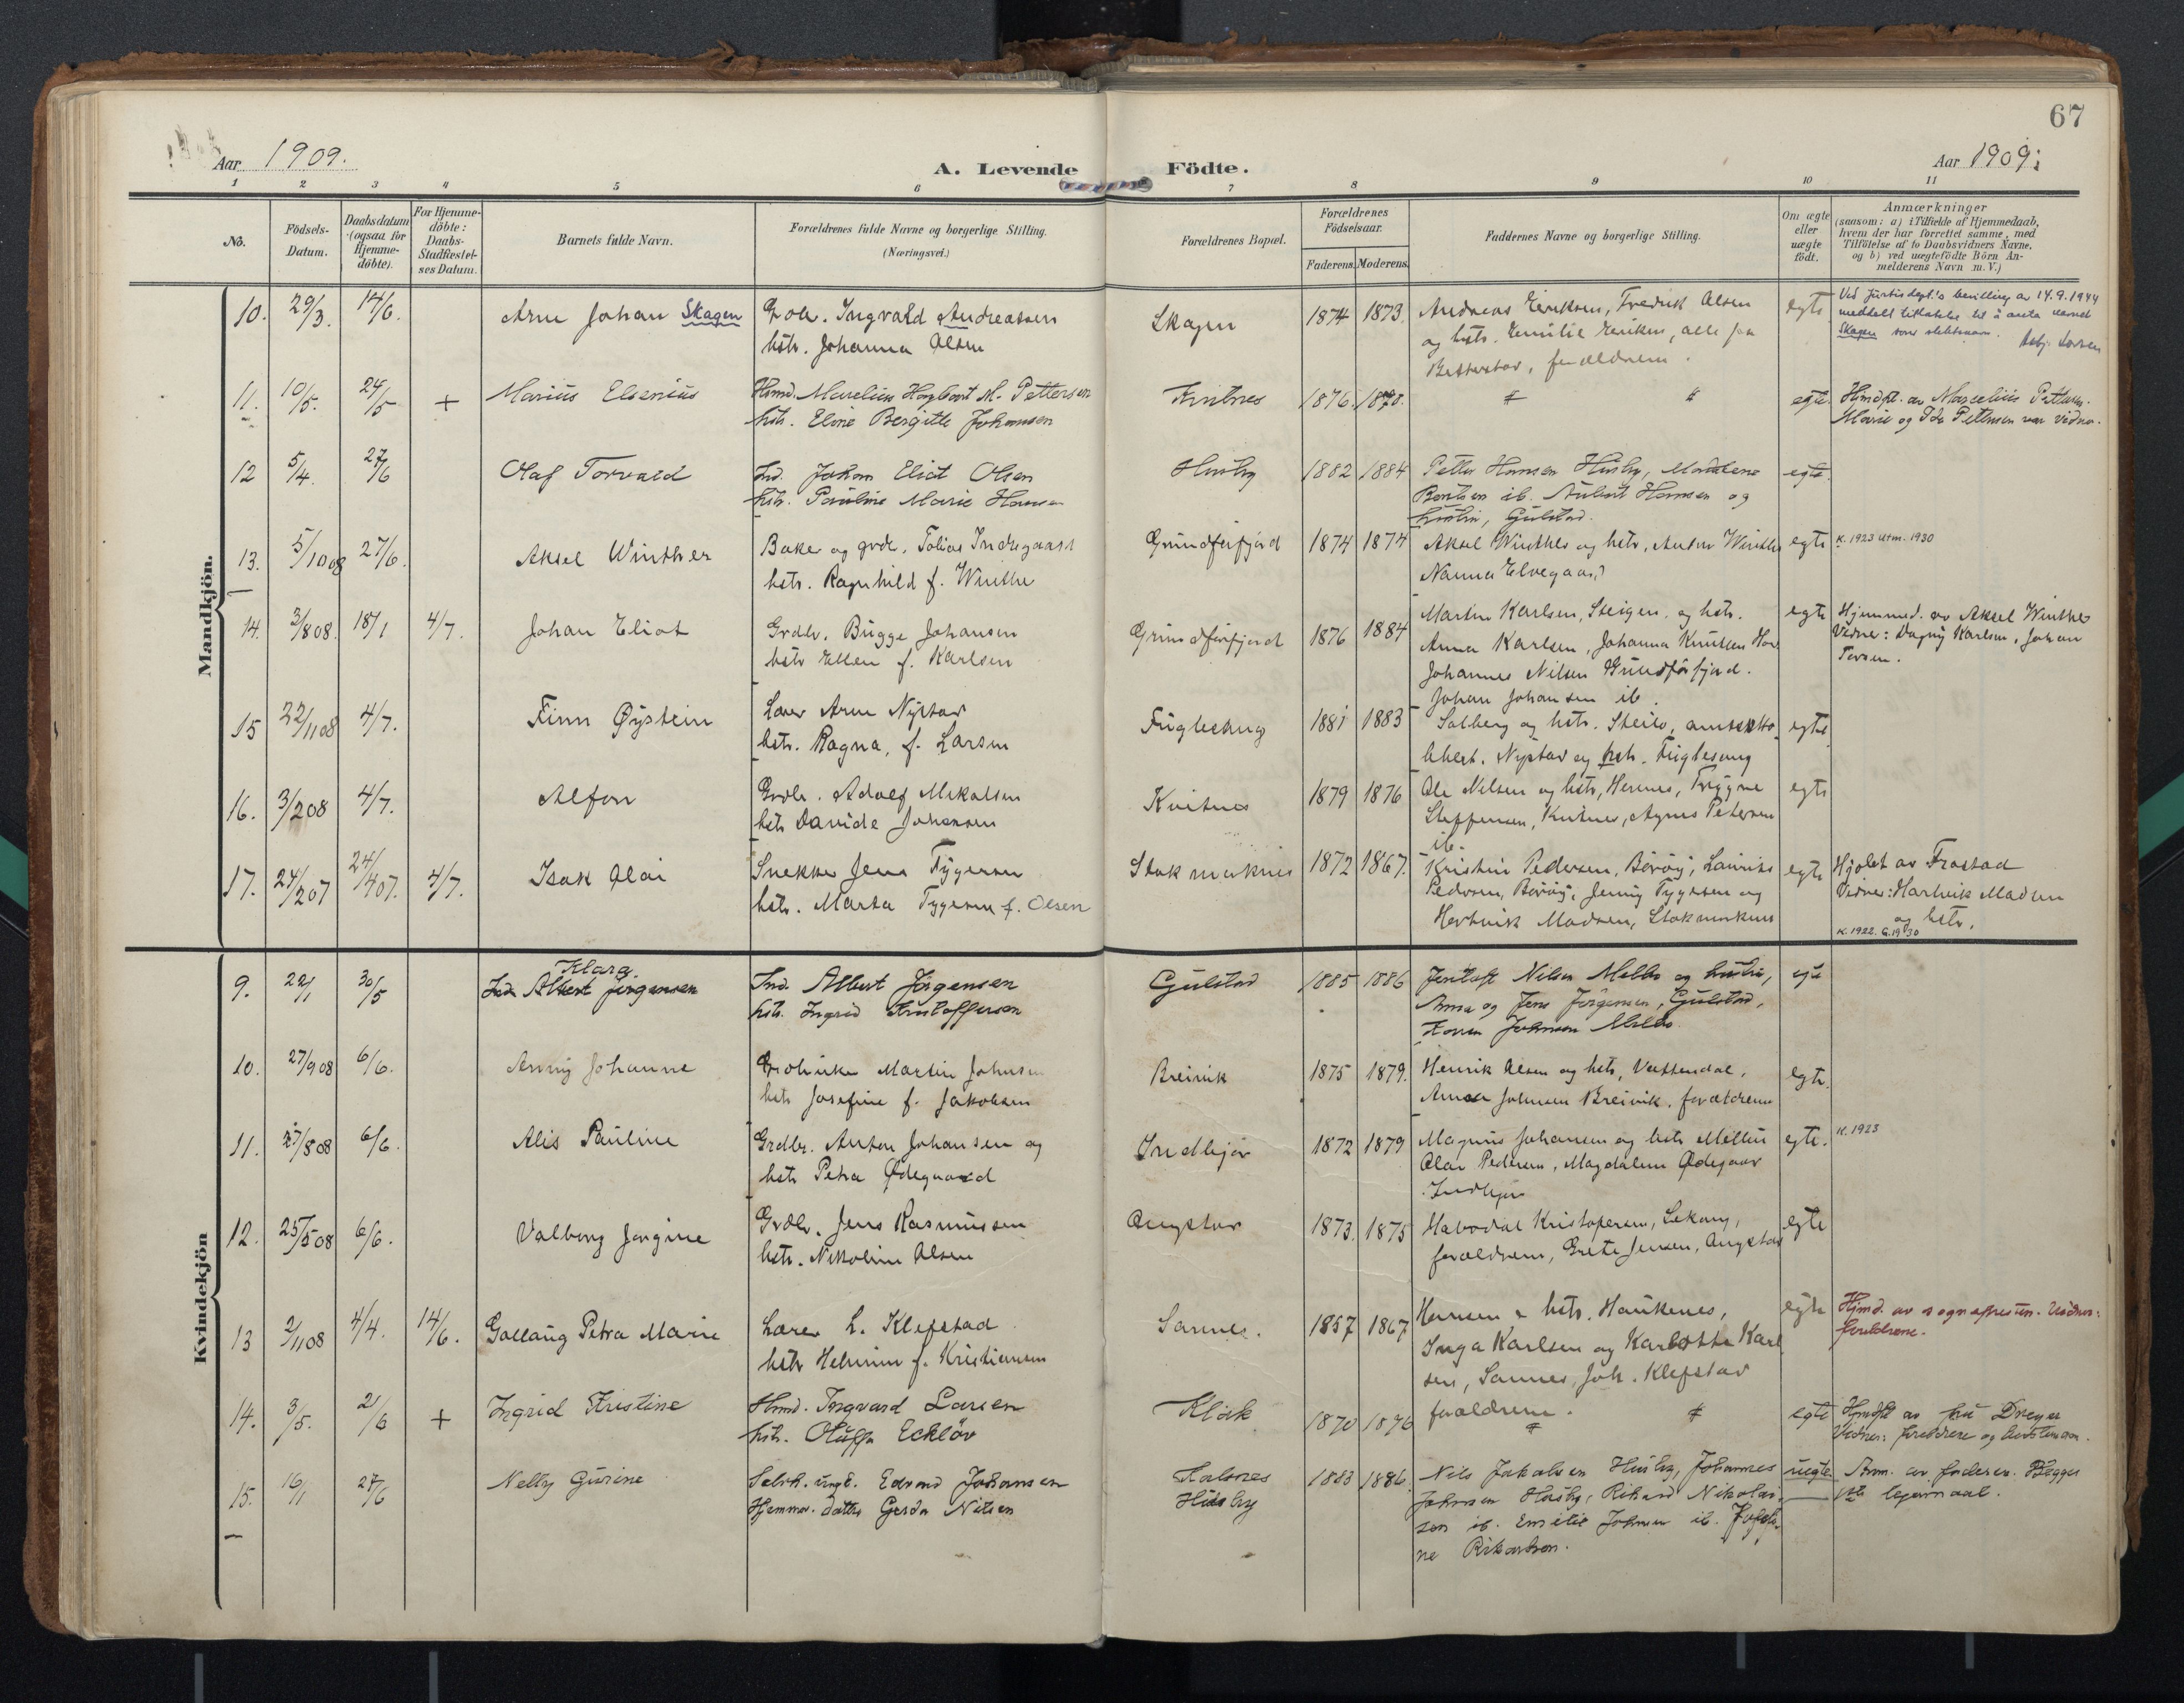 67
Aar 1909.
A. Levende Födte.
Aar 1909.
1 2 3 4 5 6 7 8 9 10 11
No.
Födsels-Datum.
Daabsdatum (ogsaa for Hjemme-döbte).
For Hjemme-döbte: Daabs-Stadfæstel-ses Datum.
Barnets fulde Navn.
Forældrenes fulde Navne og borgerlige Stilling. (Næringsvei.)
Forældrenes Bopæl.
Forældrenes Födselsaar.
Faderens. Moderens.
Faddernes Navne og borgerlige Stilling.
Om ægte eller uægte födt.
Anmærkninger
(saasom: a) i Tilfælde af Hjemmedaab,
hvem der har forrettet samme, med
Tilföielse af to Daabsvidners Navne,
og b) ved uægtefödte Börn An-
melderens Navn m. V.)
Mandkjön.
10. 29/3. 14/6. Arne Johan Skagen
Ingvald Andreassen
hstr. Johanna Olsen
Skagen 1874 1873.
Andreas Eriksen, Fredrik Olsen
og hstr. Emilie Eriksen, alle fra
forældrene.
egte
Ved Justisdept.'s bevilling av 14.9.1944
meddelt tillatelse til å anta navnet
Skagen som slektsnavn.
11. 10/5. 24/5 + Marius Elsenius
Hmd. Marelius Hagbart M. Pettersen
hstr. Eline Bergitte Johansen
1876. 1870.
egte.
Hjmdpt. av Marselius Pettersen.
Marie og Ida Pettersen var vidner.
12 5/4. 27/6 Olaf Torvald
Ind. Johan Eliot Olsen
hstr. Pauline Marie Hansen
Husby 1882 1884
Petter Hansen Husby,
Bentsen ib. Hansen og
hustru, Gulstad.
egte.
13. 5/10 08 27/6. Aksel Winther
Baker og grdr. Tobias Indregaard
hstr. Ragnhild f. Winther
Grundførfjord 1874 1874
Aksel Winther og hstr, Winther
Nanna Elvegaard
egte
K. 1923 Utm. 1930
14. 3/8 08. 18/1 4/7. Johan Eliot
Grdbr. Bugge Johansen
hstr Ellen f. Karlsen
Grundførfjord 1876 1884
Martin Karlsen, Steigen, og hstr.
Anna Karlsen, Johanna Knutsen
Johannes Nilsen Grundførfjord.
Johan Johansen ib.
egte
Hjemmed. av Aksel Winther
Vidner: Dagny Karlsen, Johan
15 22/11 08 4/7. Finn Øystein
Lærer Arne Nystad
hstr. Ragna, f. Larsen
Fuglesang 1881 1883
Solberg og hstr. Steiro,
Nystad og hstr. Fuglesang
egte
16. 3/2 08 4/7. Alfon
Grdbr. Adolf Mikalsen
hstr Davida Johansen
Kvitnes 1879 1876
Ole Nilsen og hstr, Hennes, Trygve
Steffensen, Kvitnes, Agnes Petersen
ib.
egte
17. 24/2 07 24/4 07. 4/7. Isak Olai
Snekker Jens Tygesen
hstr. Marta Tygesen f. Olsen
Stokmarknes 1872 1867.
Kristine Pedersen, Børøy, Laurits
Pedersen, Børøy, Jenny Tygesen og
Hartvik Madsen, Stokmarknes
egte
Hjdøbt av Frostad
Vidner: Hartvik Madsen
og hstr.
K. 1922. G. 1930
Kvindekjön
9. 22/1 30/5 Klara
Ind. Albert Jørgensen
Ind. Albert Jørgensen
hstr. Ingrid Kristoffersen
Gulstad 1885 1886
Jentoft Nilsen Melbo og hustru,
Anna og Jens Jørgensen, Gulstad,
Johnsen Melbo.
10. 27/9 08 6/6. Anny Johanne
Martin Johnsen
hstr Josefine f. Jakobsen
Breivik 1875 1879.
Henrik Olsen og hstr, Vattendal,
Anna Johnsen Breivik, forældrene
egte.
11. 27/8 08 6/6. Alis Pauline
Grdbr. Anton Johansen og
hstr Petra Ødegaard
1872 1879
Magnus Johansen og hstr
Olai Pedersen, Magdalene Ødegaar
egte.
K. 1923
12. 25/5 08 6/6. Valborg Jørgine
Grdbr. Jens Rasmussen
hstr. Nikoline Olsen
1873. 1875
Kristofersen,
forældrene, Grete Jensen,
egte
13 2/11 08 4/4. 14/6. Gollaug Petra Marie
Lærer L. Klefstad
hstr f. Kristiansen
Sannes. 1857 1867
Hansen & hstr. Haukenes,
Inga Karlsen og Karlotta Karl
sen, Sannes, Joh. Klefstad
forældrene.
egte
Hjmd. av sognepresten. Vidner:
foreldrene.
14. 3/5. 21/6 + Ingrid Kristine
Hmd. Ingvard Larsen
hstr. Oluffa Ecklöv
1870 1876
egte
av fru Dreyer
Vidner: foreldrene og
15. 16/1 27/6 Nelly Gurine
Edvard Johansen
Hjemmev. datter Gerda Nilsen
Kalsnes
Husby
1883 1886.
Nils Jakobsen Husby, Johannes
Johnsen Husby, Rikard Nikolai-
sen ib. Emelie Johnsen ib. Josefi-
ne Rikardsen.
uegte
Anm. av faderen. Begges
1ste leiermaal.